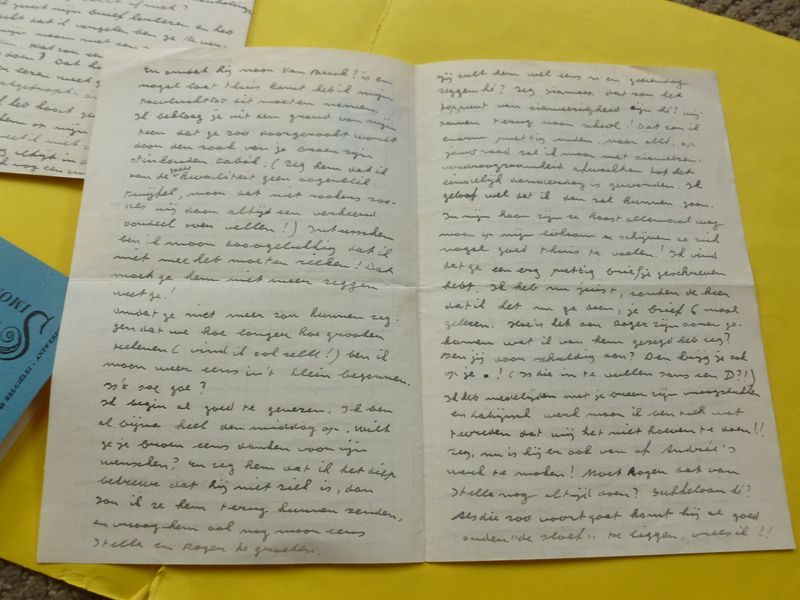 En omdat hij naar Van Beeck! is en
nogal laat thuis komt heb ik mijn
toevlucht tot dit moeten nemen.
Ik beklaag je uit een grond van mijn
teen dat ge zoo doorgerookt wordt
door den rook van je broer zijn
stinkenden tabak. (Zeg hem dat ik
aan de goede kwaliteit geen oogenblik
twijfel, maar dat niet rookers zoo-
als wij daar altijd een verkeerd
oordeel over vellen!) Intusschen
ben ik maar dood gelukkig dat ik
niet mee heb moeten rieken! Dat
moet ge hem niet meer zeggen
weet ge!
Omdat ge niet meer zou kunnen zeg-
gen dat we hoe langer hoe grooter
teekenen (vind ik ook zelf!) ben ik
maar weer eens in 't klein begonnen.
Is 't zoo goe?
Ik begin al goed te genezen. Ik ben
al bijna heel den middag op. Wilt
ge je broer eens danken voor zijn
wenschen? En zeg hem dat ik het diep
betreur dat hij niet ziek is, dan
zou ik ze hem terug kunnen zenden,
en vraag hem ook nog maar eens
Stella en Roger te groeten.
Gij zult hem wel eens 'n goeiendag
zeggen hé? Zeg siamees, dat zou het
toppunt van siameezigheid zijn hé? wij
samen terug naar school! Dat zou ik
enorm prettig vinden. maar allé, op
jouw raad zal ik maar met siameezen
verdraagzaamheid afwachten tot het
eindelijk donderdag is geworden. Ik
geloof wel dat ik dan zal kunnen gaan.
In mijn haar zijn ze haast allemaal weg
maar op mijn lichaam schijnen ze zich
nogal goed thuis te voelen! Ik vind
dat ge een erg prettig briefje geschreven
hebt. Ik heb nu juist, zonder de keer
dat ik het nu ga doen, je brief 6 maal
gelezen. Hoe is het aan Roger zijn ooren ge-
komen wat ik van hem gezegd heb zeg?
Ben jij daar schuldig aan? Dan krijg je ook
op je •! (Is die in te vullen sans een D?!!)
Ik heb medelijden met je broer zijn vraagstukken
en Latijnsch werk maar ik ben toch wat
tevreden dat wij het niet hoeven te doen!!
Zeg, nu is hij er ook van af Andrée's
werk te maken! Moet Roger dat van
Stella nog altijd doen? Sukkelaar hé?
Als die zoo voort gaat komt hij al goed
onder "de sloef" te liggen, vrees ik!!
SIMON
BELGIËLEI - ANTWERP